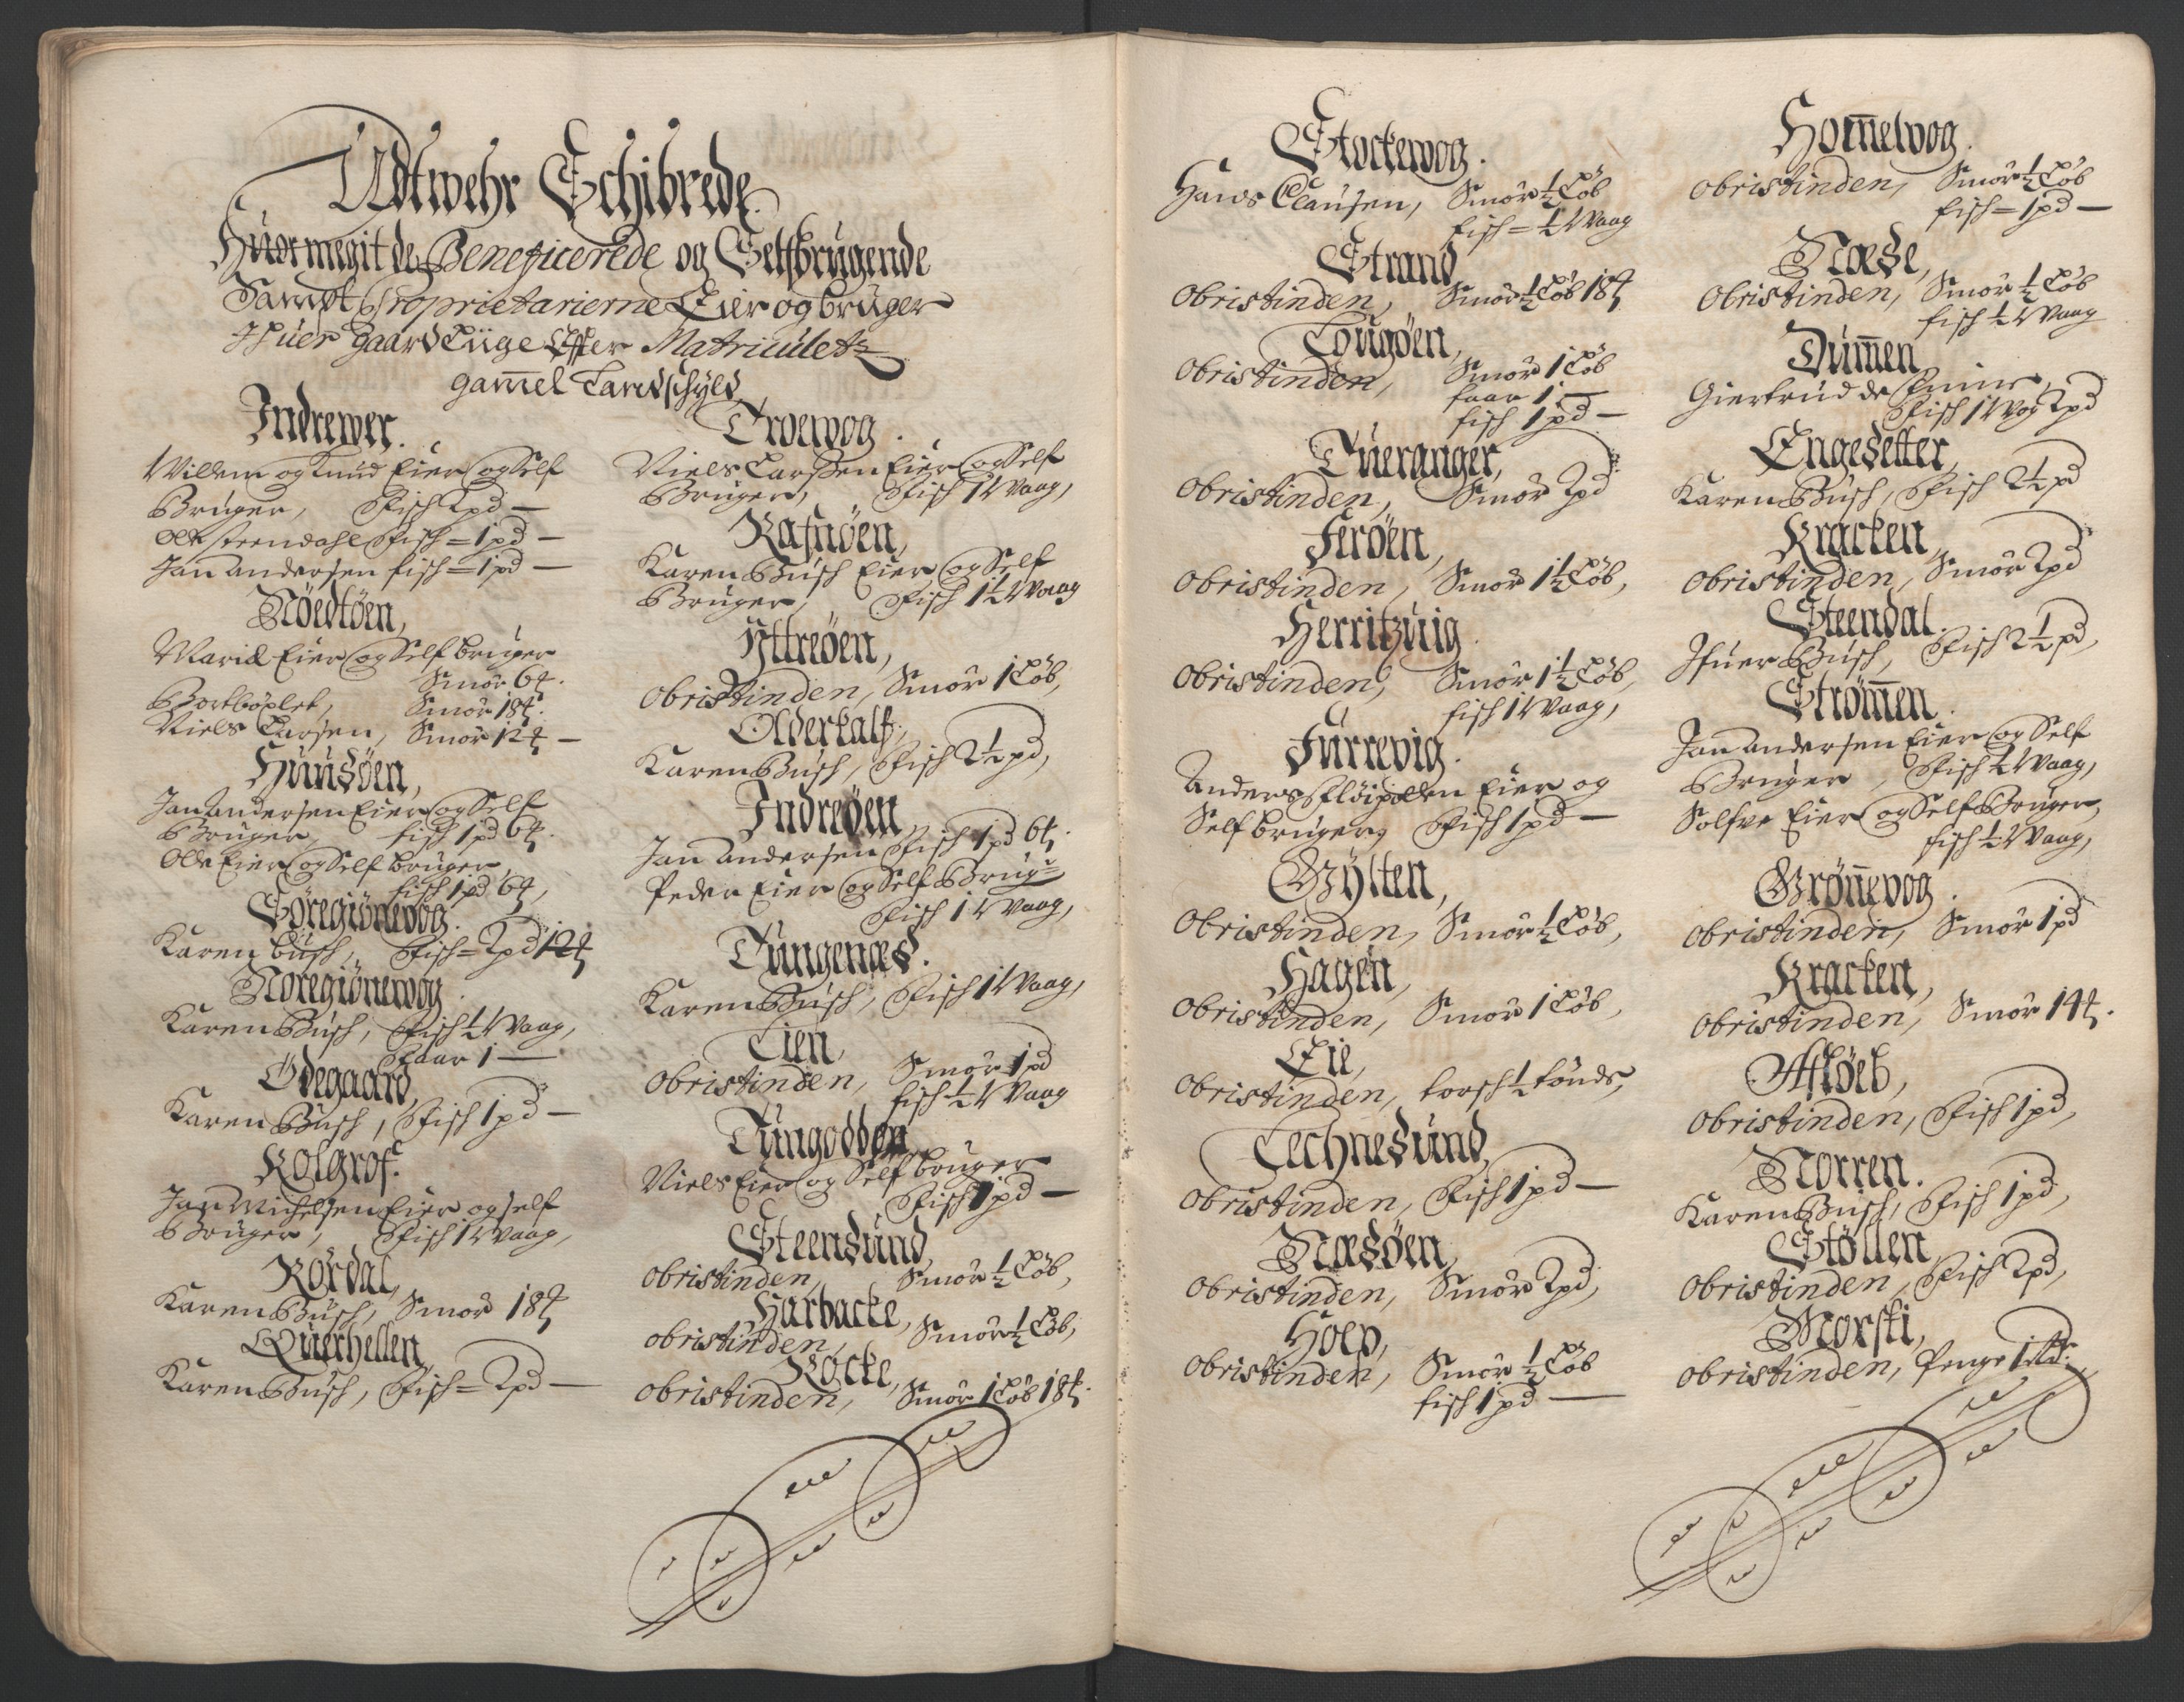 Udtwehr Schibrede
Huormegit de Beneficerede og Selfbrugende
Sampt Proprietarierne Eier og bruger
Ihuer gaard Liige Effter Matriculets
gam̄el Landschyld
Indrewer.
Willem og Knud Eier og Self
Bruger, Fisch 2 pd —
Ole steendahl Fisch = 1 pd —
Jan andersen fisch = 1 pd —
Nöedtöen,
Marid Eier og Self bruger
Smör 6 ₶.
Bortböxlet, Smör 18 ₶.
Niels Larsen, Smör 12 ₶ —
Huusöen,
Jan Andersen Eier og Self
Bruger, fisch 1 pd 6 ₶.
Ole Eier og Self bruger,
fisch 1 pd 6 ₶,
Söregiönewog.
Karen busch, Fisch = 2 pd 12 ₶
Noregiönewog.
Karen Busch, Fisch ½ Waag,
Faar 1 —
Ödegaard,
Karen Busch, Fisch 1 pd —
Kolgrof.
Jan Michelsen Eier og self
Bruger, Fisch 1 Waag,
Rördal,
Karen Busch, Smör 18 ₶
Querhellen,
Karen Busch, Fisch = 2 pd —
Troewog.
Niels Larssen Eier og Self
Bruger, Fisch 1 Waag,
Rafnöen,
Karen Busch Eier og Self
Bruger, Fisch 1½ Waag
Yttreöen,
Obristinden, Smör 1 Löb,
Olderkalf,
Karen Busch, Fisch 2½ pd,
Indreöen,
Jan Andersen Fisch 1 pd 6 ₶.
Peder Eier og Self Brug:
Fisch 1 Waag,
Tungenæs.
Karen Busch, Fisch 1 Waag,
Lien,
Obristinden, Smör 1 pd
fisch ½ Waag
Tungodden
Niels Eier og Self bruger
Fisch 1 pd —
Steensund,
obristinden, Smör ½ Löb,
Harbacke,
obristinden, Smör ½ Löb,
Kocke,
obristinden, Smör 1 Löb 18 ₶.
Stockewog.
Hans Clausen, Smör ½ Löb
fisch = ½ Waag
Strand
Obristinden, Smör ½ Löb 18 ₶
Lougöen,
Obristinden, Smör 1 Löb
faar 1 —
fisch 1 pd —
Tueranger,
Obristinden, Smör 2 pd
Feröen,
Obristinden, Smör 1½ Löb,
Herritzuig.
Obristinden, Smör 1½ Löb,
fisch 1 Waag,
Furrevig.
Anders Flöipollen Eier og
Self bruger, Fisch 1 pd —
Gylten,
Obristinden, Smör ½ Löb,
Hagen,
Obristinden, Smör 1 Löb,
Eie,
Obristinden, torsch ½ tönde,
Techнesund,
Obristinden, Fisch 1 pd —
Næsöen,
Obristinden, Smör 2 pd,
Holp,
Obristinden, Smör ½ Löb
fisch 1 pd —
Hom̄elvog.
obristinden, Smör ½ Löb
fisch = 1 pd —
Næse,
Obristinden, Smör ½ Löb
fisch ½ Waag
Dum̄en
Giertrud de Fine,
Fisch 1 Wog 2 pd
Engesetter,
Karen Busch, Fisch 2½ pd
Kracken,
Obristinden, Smör 2 pd
Steendal.
Ifuer Busch, Fisch 2½ pd,
Ström̄en.
Jan andersen Eier og Self
Bruger, Fisch ½ Waag,
Solfve Eier og Self Bruger,
fisch ½ Waag,
Grön̄evog.
obristinden, Smör 1 pd
Kracken,
Obristinden, Smör 14 ₶.
Aflöeb,
Obristinden, Fisch 1 pd,
Norren.
Karen Busch, Fisch 1 pd,
Stöllen,
Obristinden, Fisch 2 pd,
Morski,
obristinden, Penge 1 Rdr.